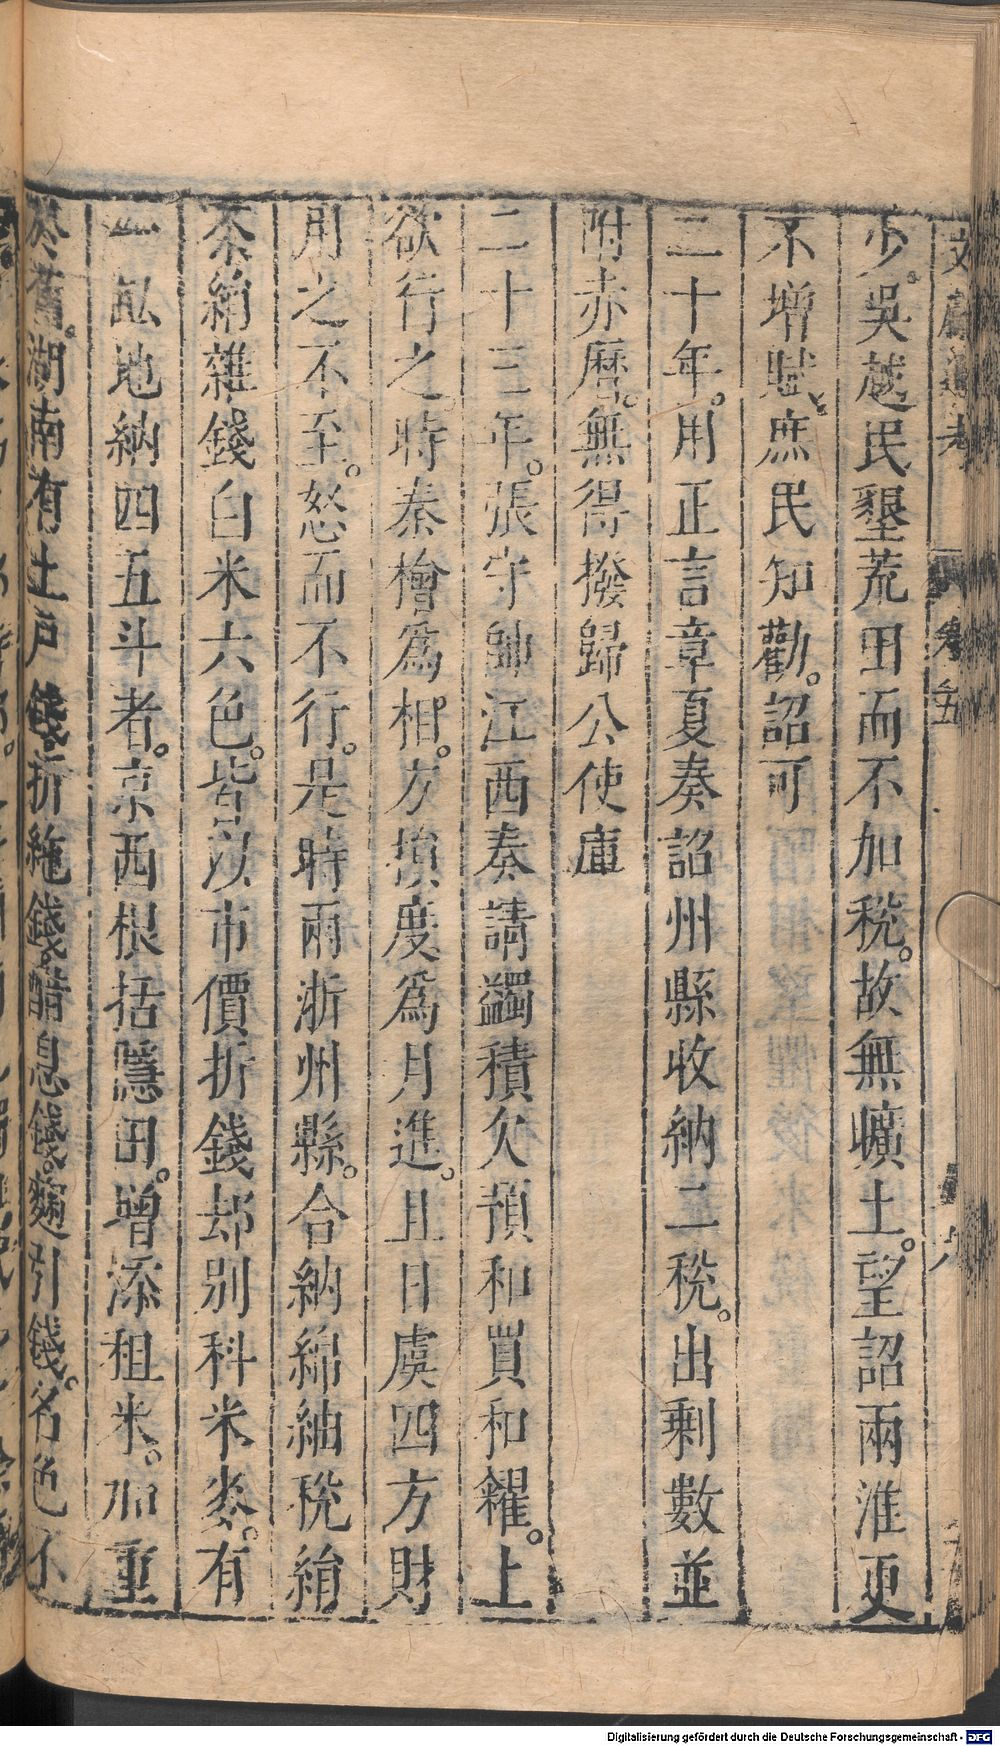 文獻通考 卷五 六
少。吳越民墾荒田而不加稅。故無曠土。望詔兩淮更
不增賦、庶民知勸。詔可
二十年。用正言章夏奏詔州縣收納二稅。出剩數並
附赤曆。無得撥歸公使庫
二十三年。張守帥江西奏請蠲積欠預和買和糴。上
欲行之。時秦檜爲相。方損度爲月進。且日虞四方財
用之不至。怒而不行。是時兩浙州縣。合納綿紬稅絹
茶絹雜錢白米六色。皆以市價折錢却別科米麥。有
一畝地納四五斗者。京西根括隱田。增添租米。加重
於舊。湖南有土戶錢折絁錢醋息錢麴引錢。名色不
Digitalisierung gefördert durch die Deutsche Forschungsgemeinschaft - DFG